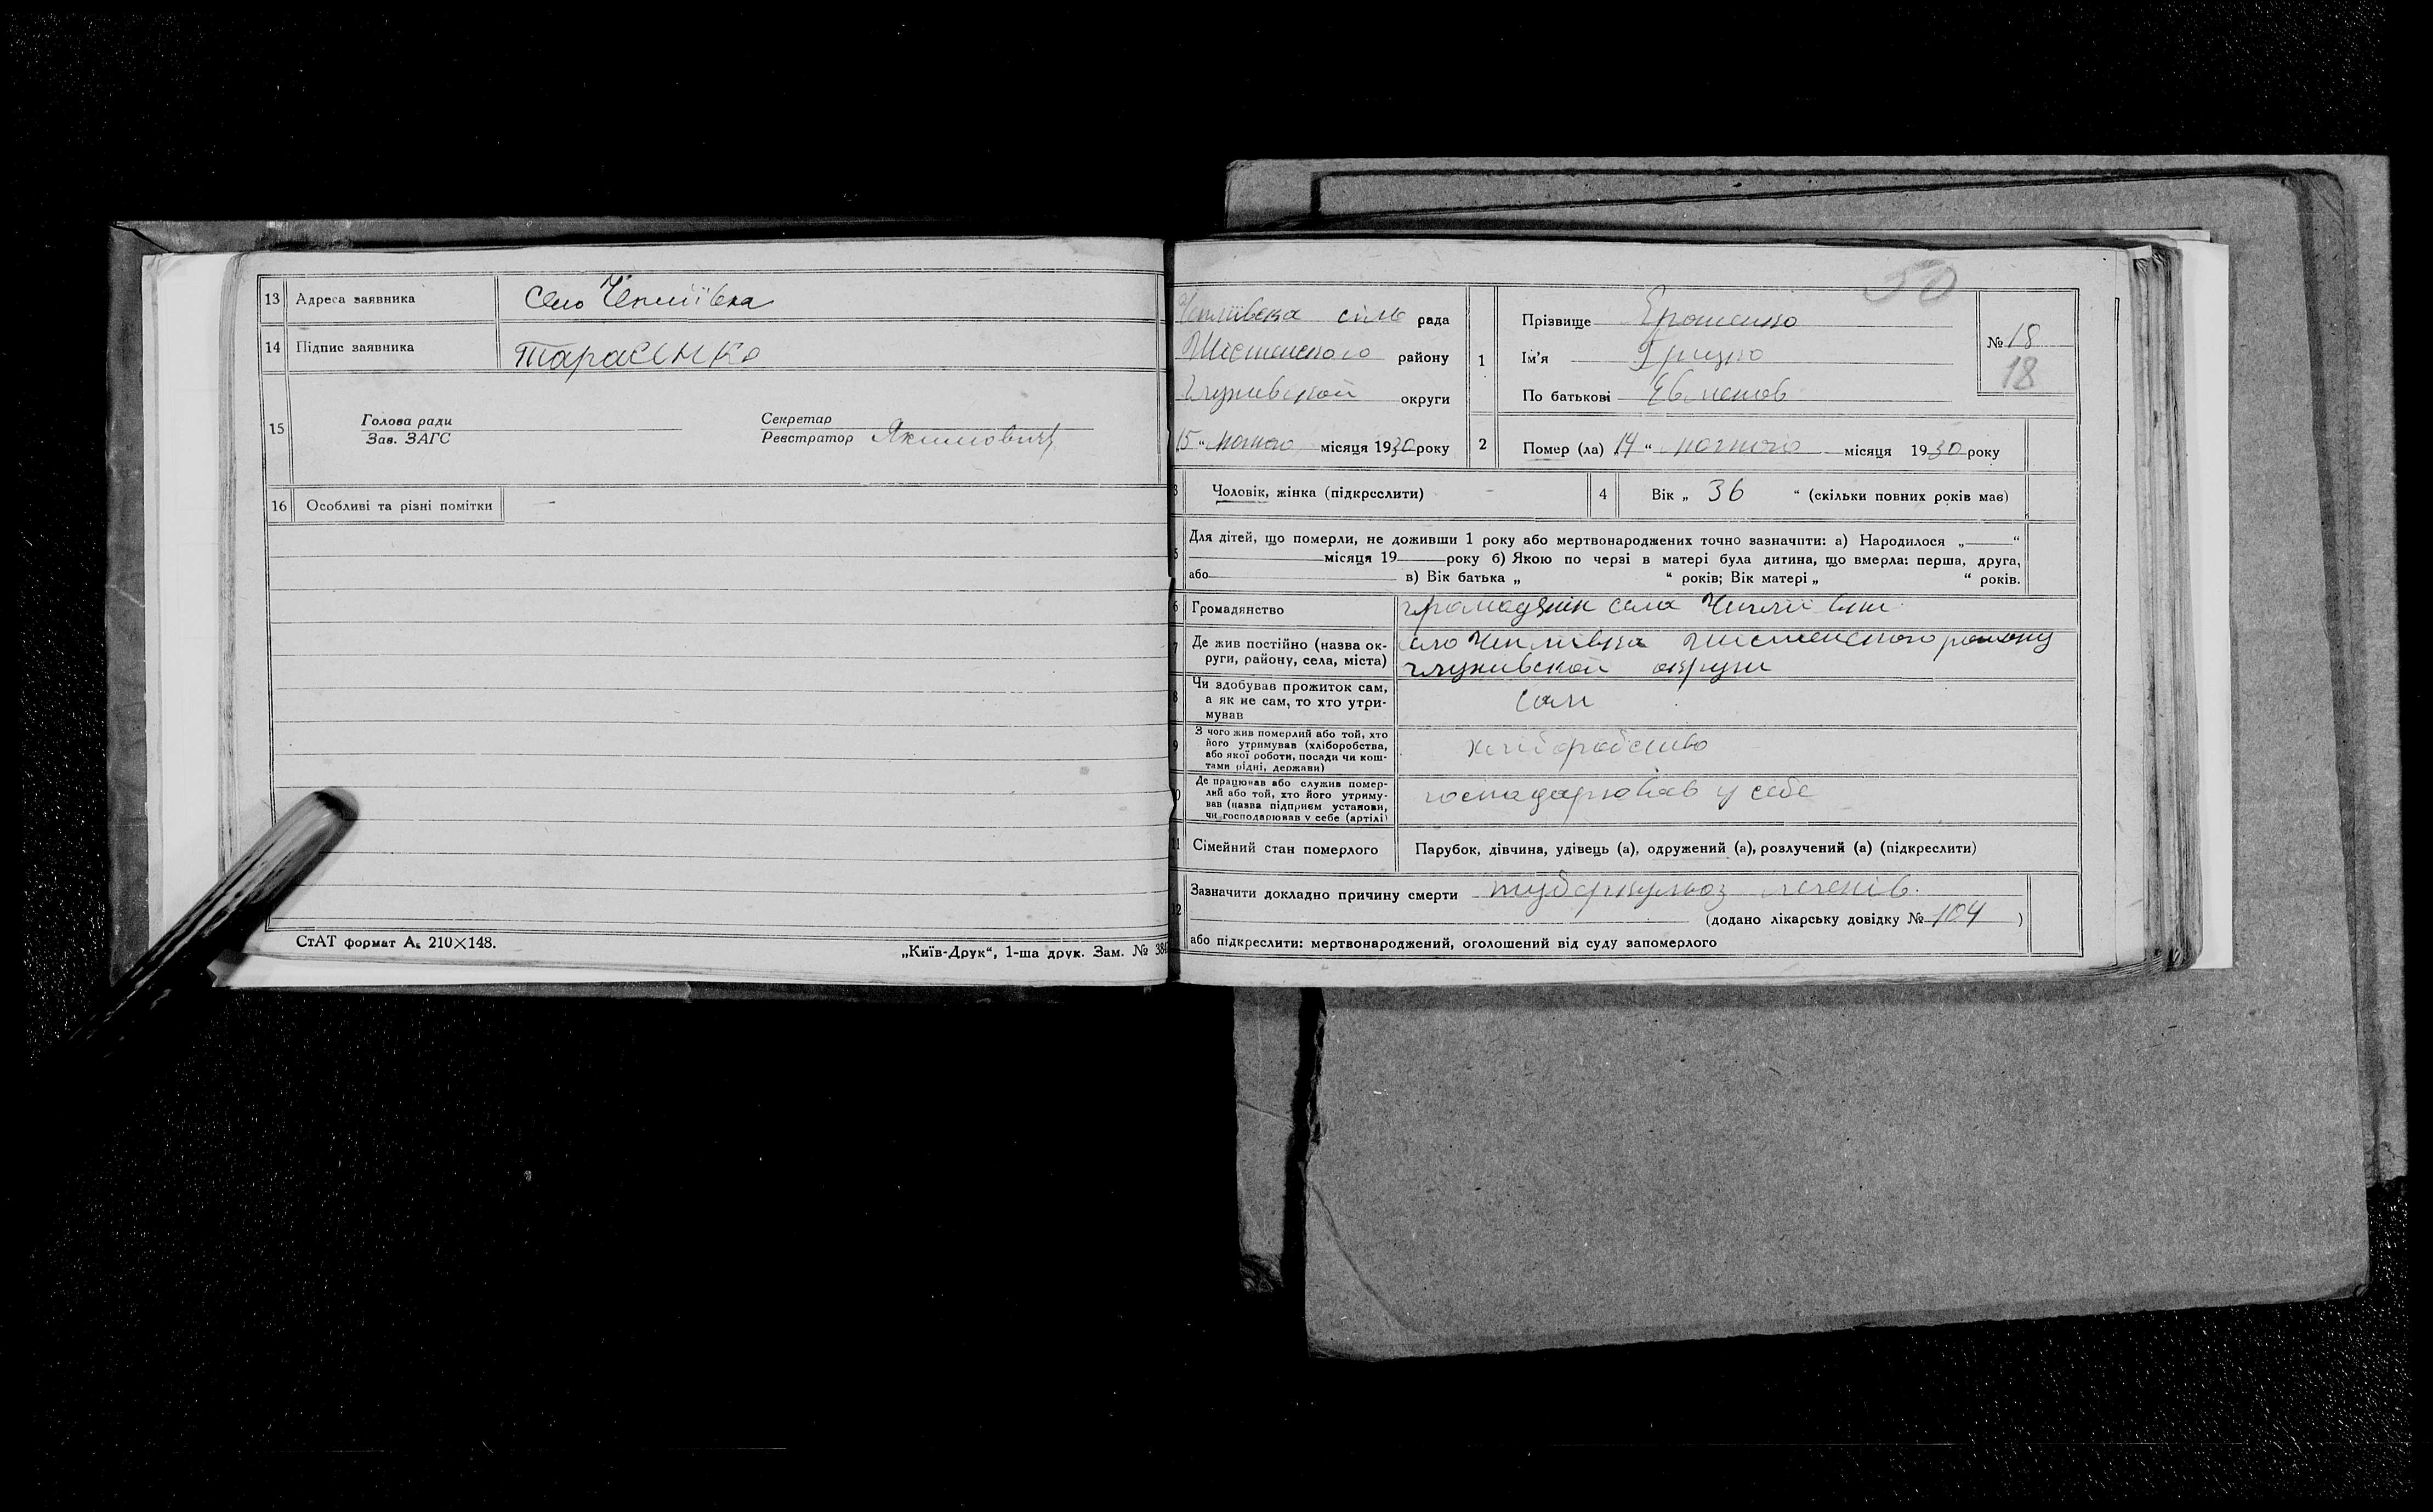 13 Адреса заявника Село Чепліївка
14 Підпис заявника Тарасенко
15 Голова ради
Зав. ЗАГС
Секретар
Реєстратор Якимович
16 Особливі та різні помітки —
СтАТ формат А₅ 210×148.
„Київ-Друк“, 1-ша друк. Зам. № 38
50
Чепліївська сіль рада
району
Глухивской округи
15 “ лютого місяця 1930 року
1 Прізвище Ярошенко
Ім'я Грицко
По батькові Евменов
№ 18
18
2 Помер (ла) 14 “ лютого місяця 1930 року
3 Чоловік, жінка (підкреслити) -
4 Вік „ 36 “ (скільки повних років має)
5 Для дітей, що померли, не доживши 1 року або мертвонароджених точно зазначити: а) Народилося „ “
місяця 19 року б) Якою по черзі в матері була дитина, що вмерла: перша, друга,
або в) Вік батька „ “ років; Вік матері „ “ років.
6 Громадянство громадянін села
7 Де жив постійно (назва ок-
руги, району, села, міста)
село Чепліївка району
глухивской округи
8 Чи здобував прожиток сам,
а як не сам, то хто утри-
мував
сам
9 З чого жив померлий або той, хто
його утримував (хліборобства,
або якої роботи, посади чи кош-
тами рідні, держави)
хліборобство
0 Де працював або служив помер-
лий або той, хто його утриму-
вав (назва підприєм установи,
чи господарював у себе (артілі)
господарював у себе
11 Сімейний стан померлого Парубок, дівчина, удівець (а), одружений (а), розлучений (а) (підкреслити)
12 Зазначити докладно причину смерти туберкульоз легенів.
(додано лікарську довідку № 104 )
або підкреслити: мертвонароджений, оголошений від суду запомерлого